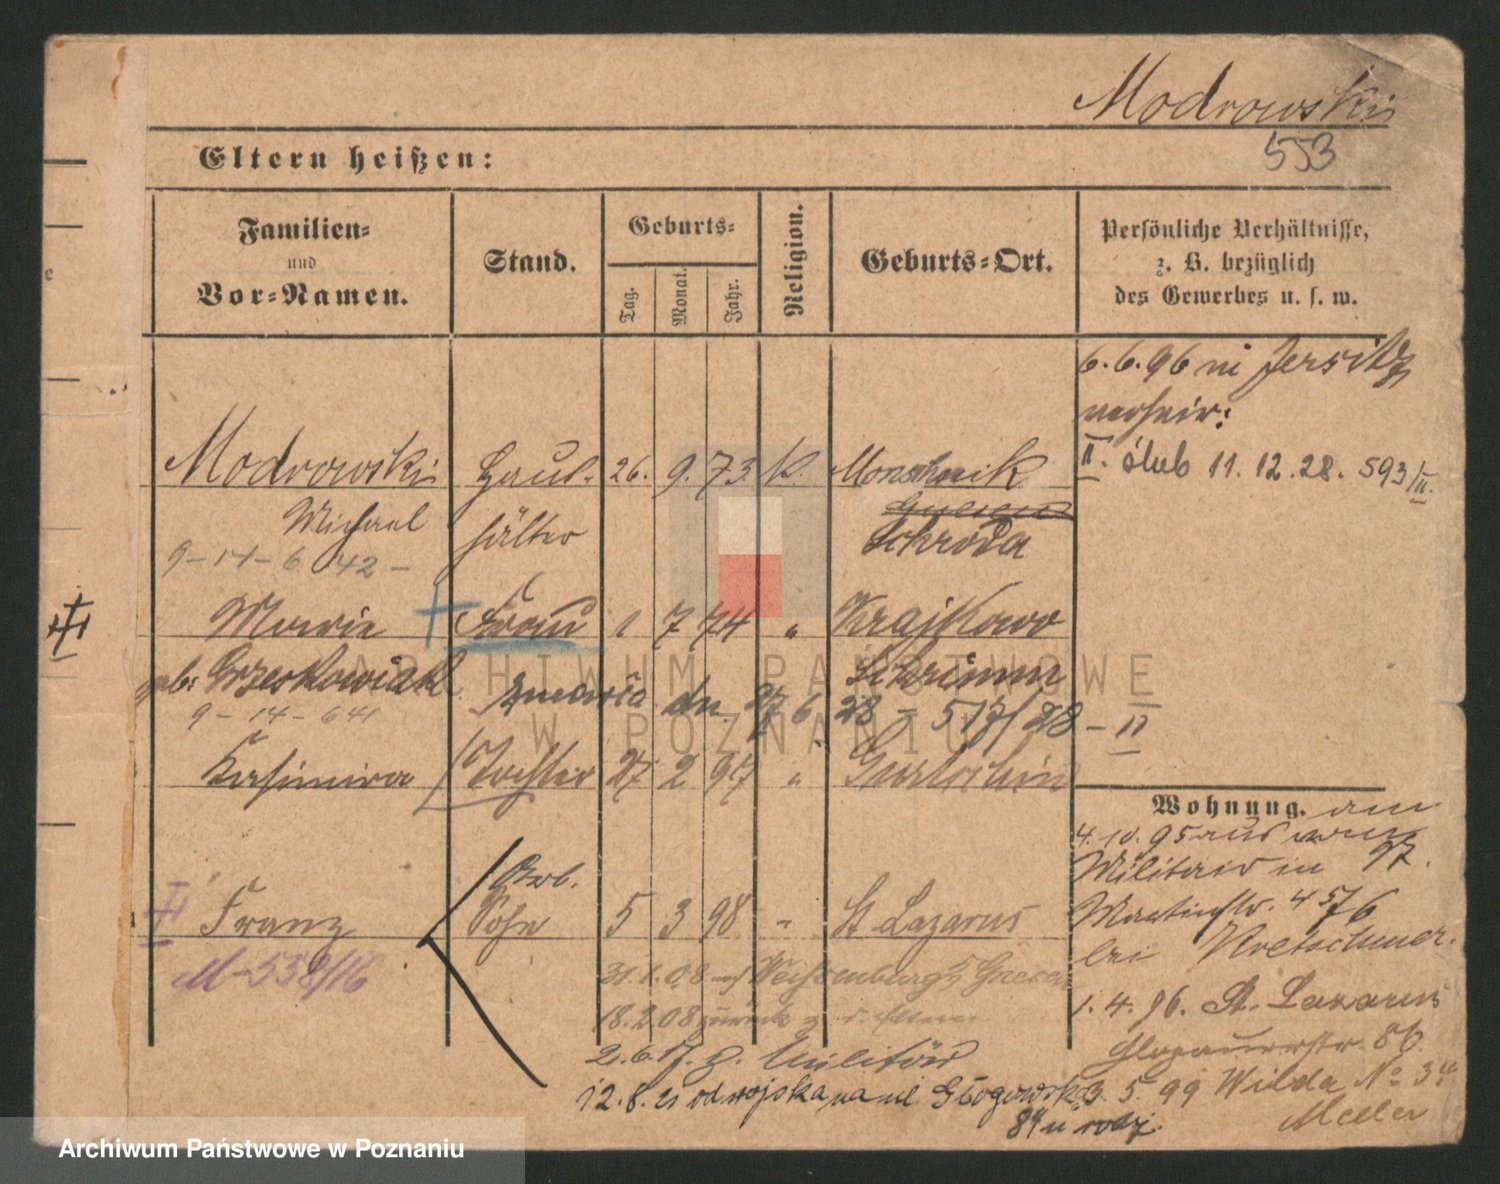 Modrowski
553
Eltern heißen:
Familien-
und
Vor-Namen.
Stand.
Geburts-
Tag.
Monat.
Jahr.
Religion.
Geburts-Ort.
Persönliche Verhältnisse,
z. B. bezüglich
des Gewerbes u. s. w.
6.6.96 in Jersitz
verheir:
II. ślub 11.12.28. 593/II.
Modrowski Haus- 26. 9. 73 K. Monschnik
Michael hälter Schroda
9-14-6 42-
Marie Frau 1 7 74 " Krajkowo
geb: Grzeskowiak Schrimm
9-14-641
zmarła dn. 27 6 28 - 517/28 - II
Kasimira Tochter 27 2 97 " Gurtschin
Wohnung. am
4.10.95 aus
Militair in 97.
Martinstr. 4 576
bei Kretschmer.
Arb.
Franz Sohn 5 3 98 " St Lazarus
M-558/16
31.1.08 Weissenburg
18.2.08 zurück z. d. Eltern
1.4.96. St. Lazarus
Glogauerstr. 86.
2.6.17. z. Militär
12.8.21 od wojska na ul. Głogowską
84 u rodz.
3.5.99 Wilda No 34
ARCHIWUM PAŃSTWOWE
W POZNANIU
Archiwum Państwowe w Poznaniu